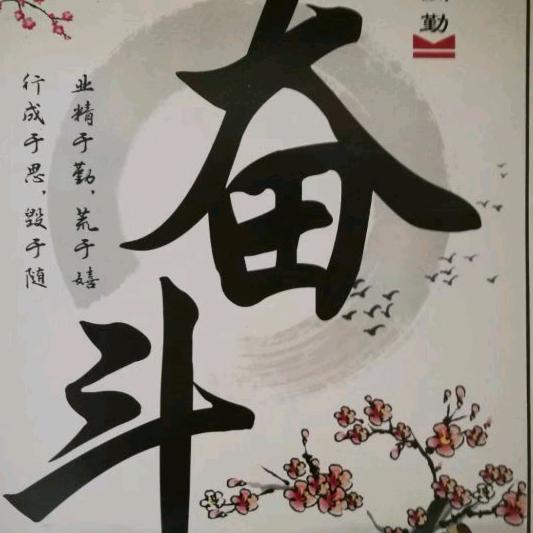 勤
奋
斗
业精于勤，荒于嬉
行成于思，毁于随